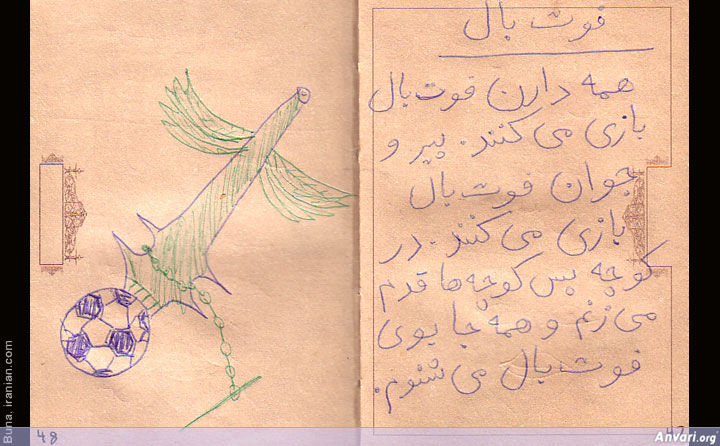 فوت بال
همه دارن فوت بال
بازی می کنند. پیر و
جوان فوت بال
بازی می کنند. در
کوچه پس کوچه ها قدم
می زنم و همه جا بوی
فوت بال می شنوم.
48
47
Buna. iranian.com
Anvari.org